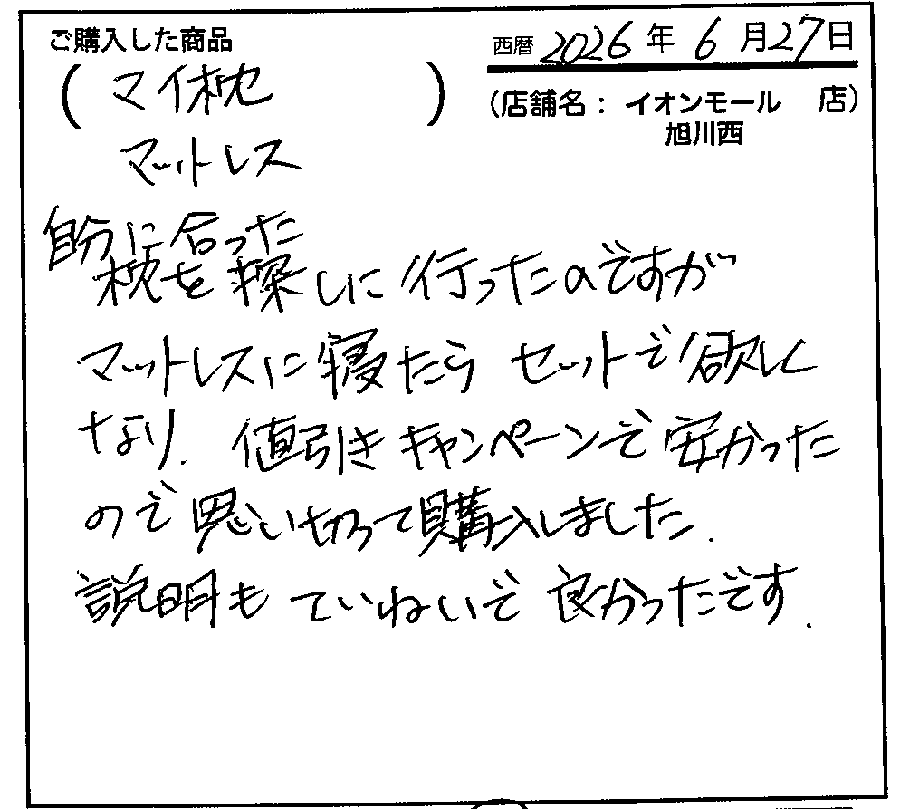 ご購入した商品
西暦 2026年 6月27日
(マイ枕)
(店舗名：イオンモール 店)
旭川西
マットレス
自分に合った
枕を探しに行ったのですが
マットレスに寝たら セットで欲しく
なり、値引きキャンペーンで安かった
ので思い切って購入しました.
説明も ていねいで 良かったです.